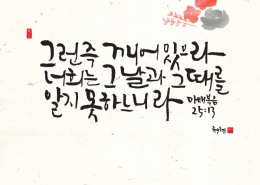 그런즉 깨어 있으라
너희는 그날과 그때를
알지 못하느니라 마태복음
25:13